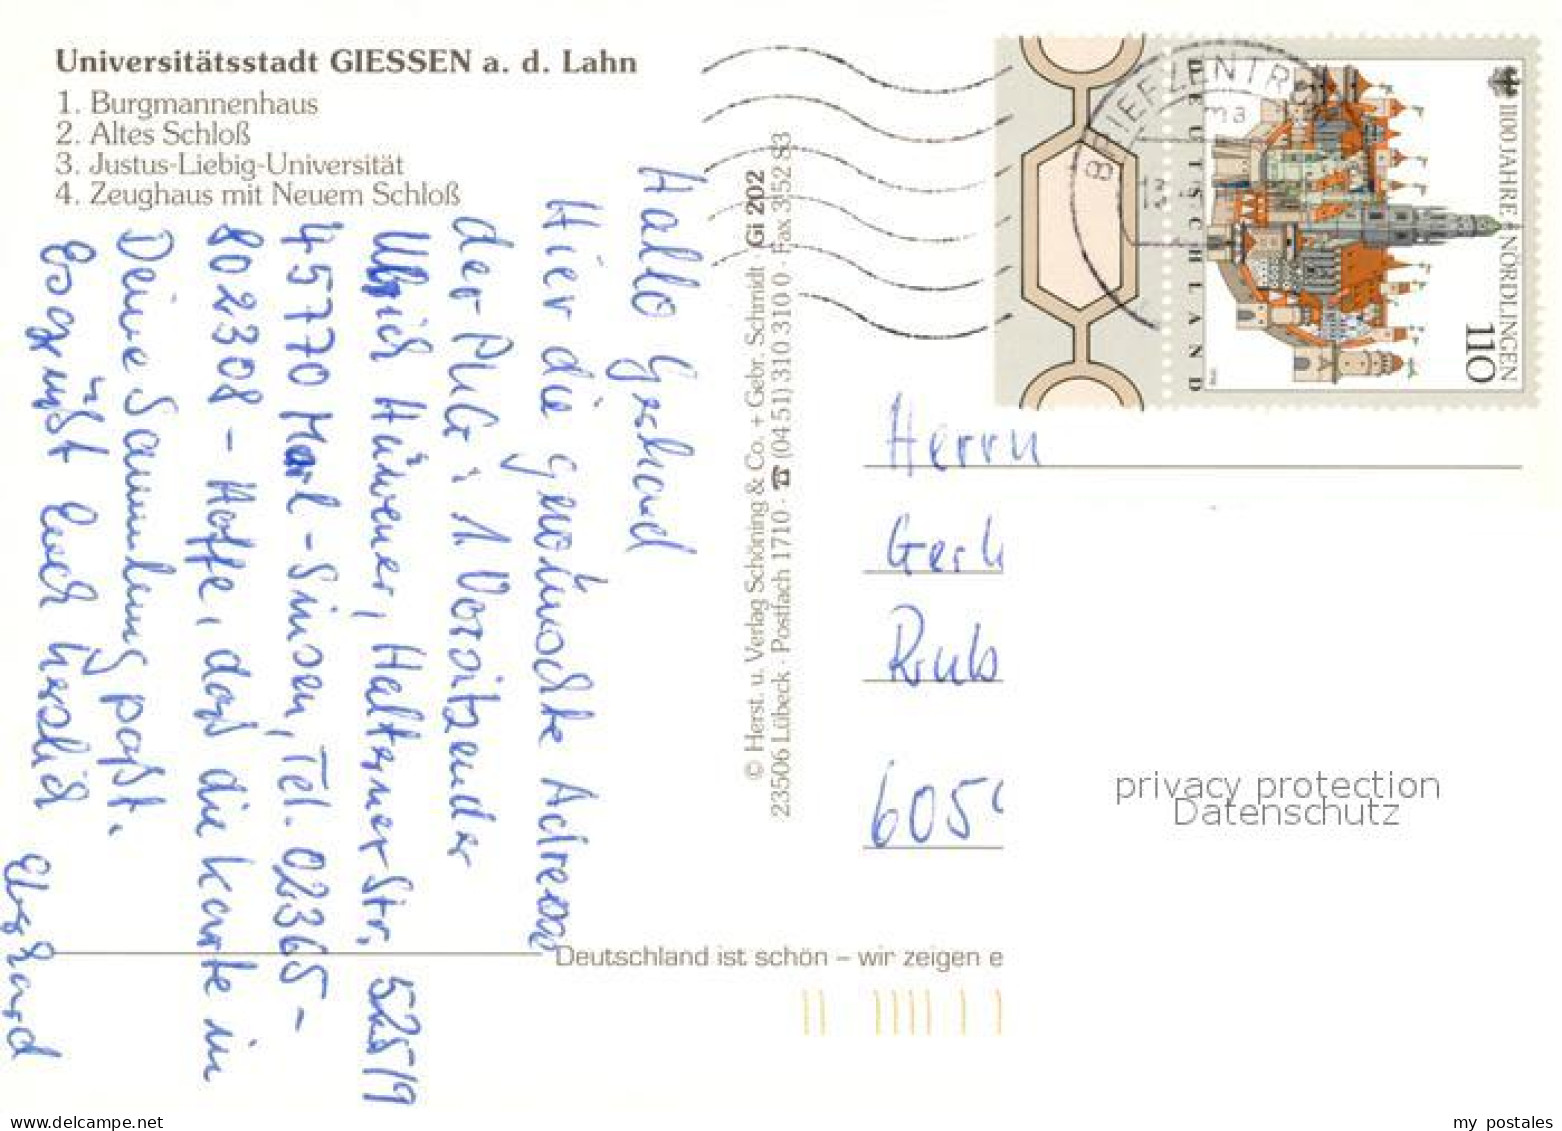 Universitätsstadt GIESSEN a. d. Lahn
1. Burgmannenhaus
2. Altes Schloß
3. Justus-Liebig-Universität
4. Zeughaus mit Neuem Schloß
Hallo Gerhard
Hier die gewünschte Adresse
der PhG: 1. Vorsitzender
Ulrich Hüwener, Halterner Str. 525/9
45770 Marl-Sinsen, Tel. 02365-
802308 - Hoffe, daß die Karte in
Deine Sammlung paßt.
Es grüßt Euch herzlich
Eberhard
© Herst. u. Verlag Schöning & Co. + Gebr. Schmidt · Gi 202
23506 Lübeck · Postfach 1710 · ☎ (04 51) 310 310 0 · Fax 3 52 83
BRIEFZENTRU
13
DEUTSCHLAND
1100 JAHRE NÖRDLINGEN
110
Herrn
Gerh
Rub
605
privacy protection
Datenschutz
Deutschland ist schön – wir zeigen e
my postales